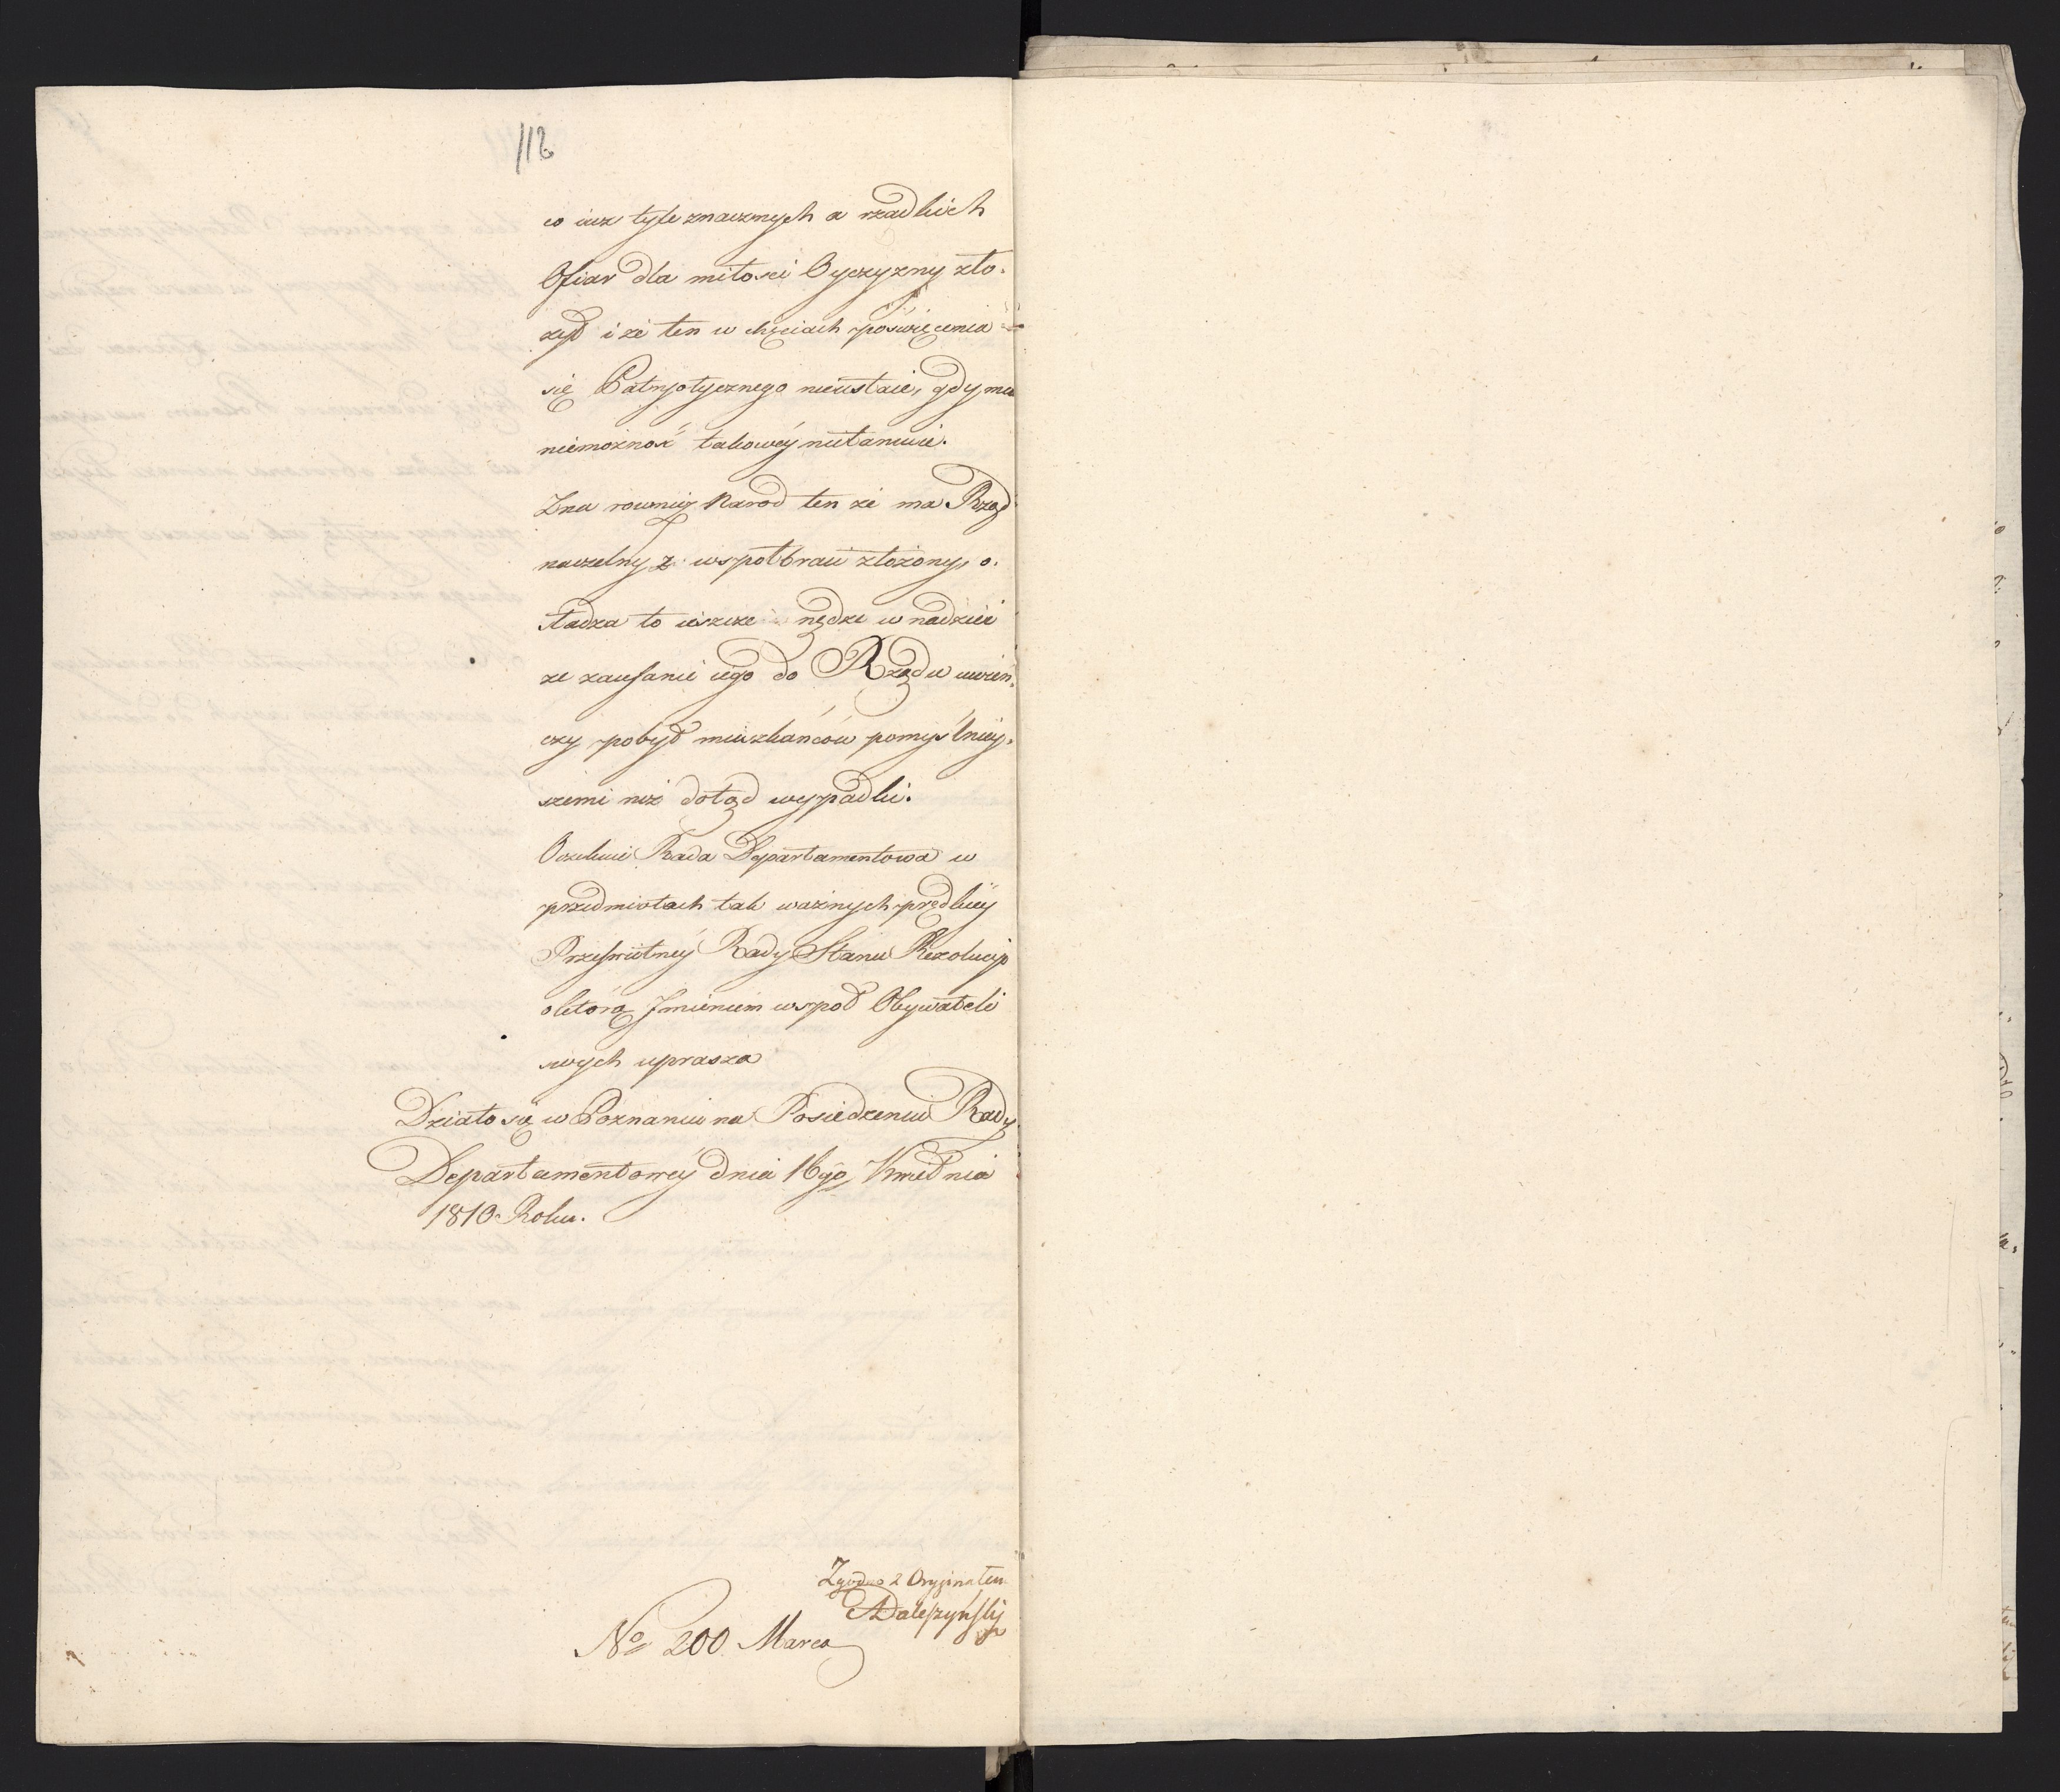 112
co iuż tyle znacznych a rzadkich
Ofiar dla miłosci Oyczyzny zło-
żył i że ten w chęciach poświęcenia
się Patryotycznego nieustaie, gdy mu
niemożność takowéy nietamuie.
Zna rowniez Narod ten że ma Rząd
naczelny z wspołbraci złożony, o-
sładza to ieszcze nędze w nadziei
ze zaufanie iego do Rządu uwień-
czy pobyt mieszkańców pomyślniey-
szemi niż dotąd wypadki.
Oczekuie Rada Departamentowa w
przedmiotach tak ważnych prędkiey
Prześwietney Rady Stanu Rezolucyi
októrą Jmieniem wspoł Obywateli
swych uprasza
Działo się w Poznaniu na Posiedzeniu Rady
Departamentowéy dnia 16go Kwietnia
1810 Roku.
Zgodno z Oryginałem
Daleszyński
No 200 Marca